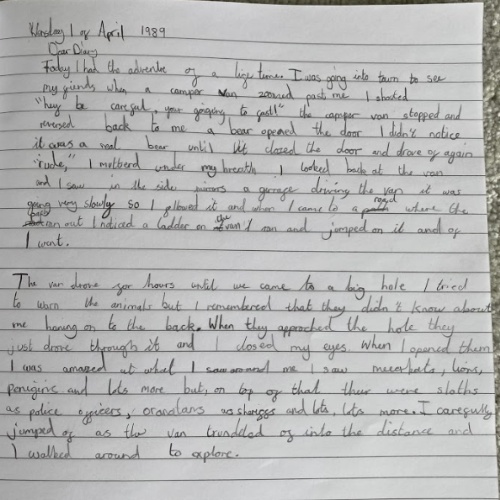 1 of April 1989
Dear Diary
Today I had the adventure of a life time. I was going into town to see
my friends when a camper van zoomed past me I shouted
"hey be careful your going to fast!" the camper van stopped and
reversed back to me a bear opened the door I didn't notice
it was a real bear until it closed the door and drove of again
"rude," I mutterd under my breath I looked back at the van
and I saw in the side mirrors a driving the van it was
going very slowly so I followed it and when I came to a road where the
ran out I noticed a ladder on the van I ran and jumped on it and of
I went.
The van drove for hours until we came to a big hole I tried
to warn the animals but I remembered that they didn't know about
me haning on to the back. When they approched the hole they
just drove through it and I closed my eyes. When I opened them
I was amazed at what I saw around me I saw meerkats, lions,
penguins and lots more but, on top of that ther were sloths
as police officers, orandtans as and lots, lots more. I carefully
jumped of as the van trundeled of into the distance and
I walked around to explore.